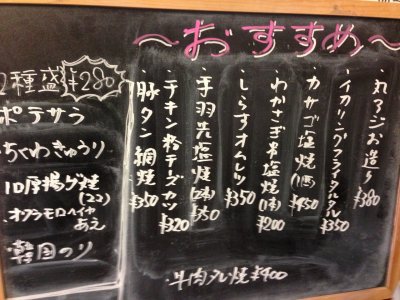 ～おすすめ～
・丸アジお造り ¥380
・イカリングフライタルタル ¥350
・カサゴ塩焼(1匹) ¥450
・わかさぎ串塩焼(1本) ¥200
・しらすオムレツ ¥350
・手羽先塩焼(2本) ¥350
・チキン粉チーズカツ ¥320
・豚タン網焼 ¥350
・牛肉タレ焼 ¥400
2種盛 ¥280
ポテサラ
ちくわきゅうり
厚揚げ焼
オクラモロヘイヤ
あえ
韓国のり